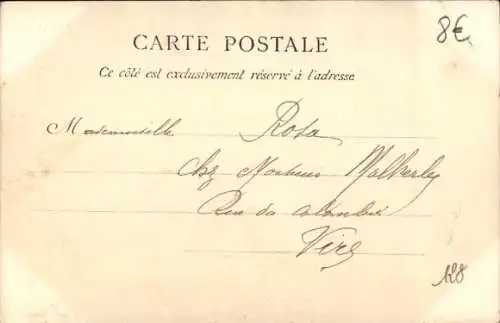 8€
CARTE POSTALE
Ce côté est exclusivement réservé à l'adresse
Mademoiselle Rosa
chz Monsieur Malherbe
Rue du Calombier
Vire
128